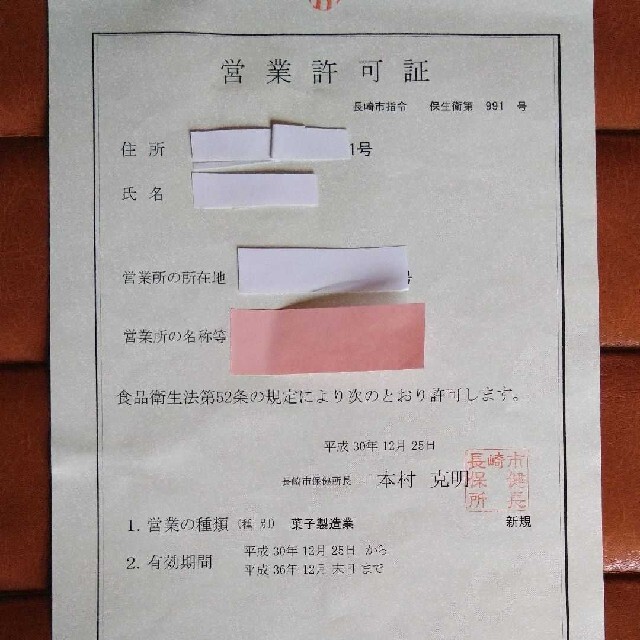 営業許可証
長崎市指令 保生衛第 991 号
住所 1号
氏名
営業所の所在地 号
営業所の名称等
食品衛生法第52条の規定により次のとおり許可します。
平成30年12月25日
長崎市保健所長 本村 克明
長崎市保健所長
新規
1. 営業の種類 (種別) 菓子製造業
2. 有効期間 平成30年12月25日 から
平成36年12月末日まで